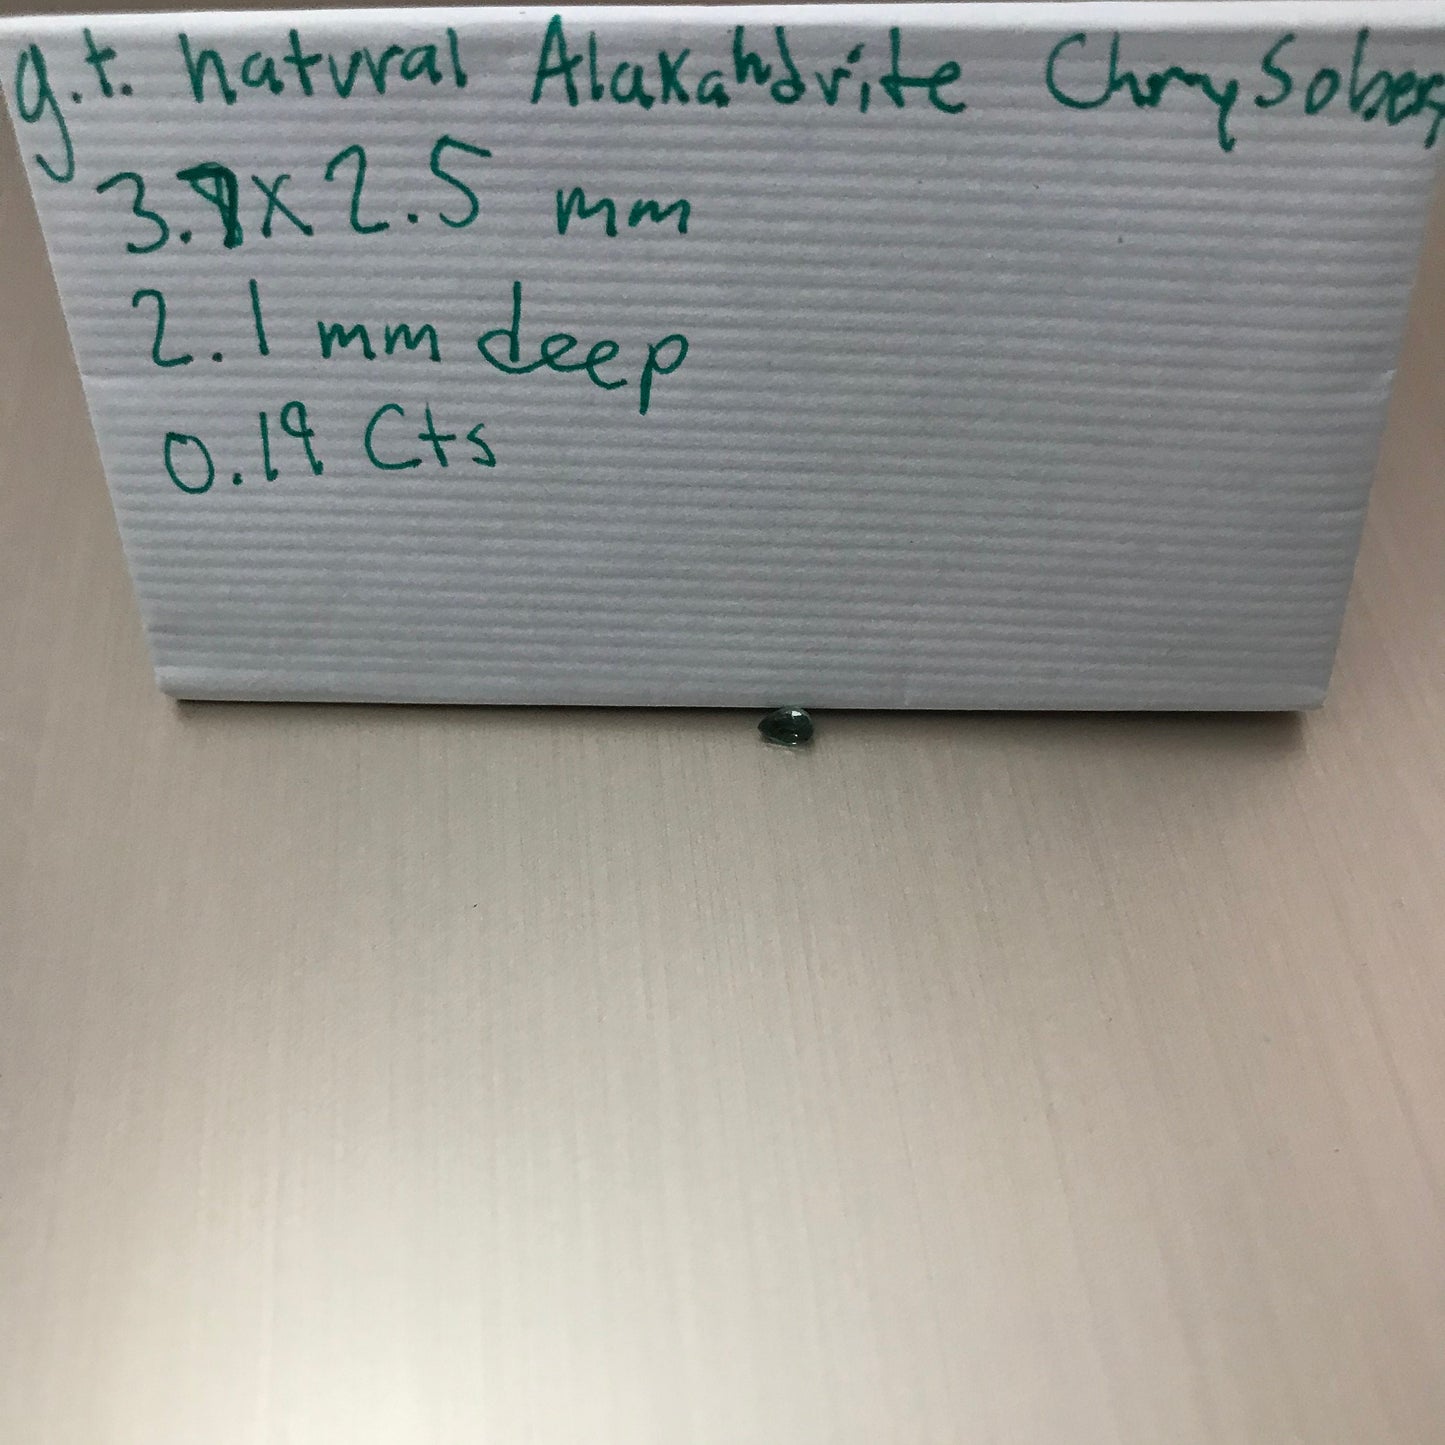 g.t. natural Alaxahdrite Chrysober
3.9x2.5 mm
2.1 mm deep
0.19 Cts